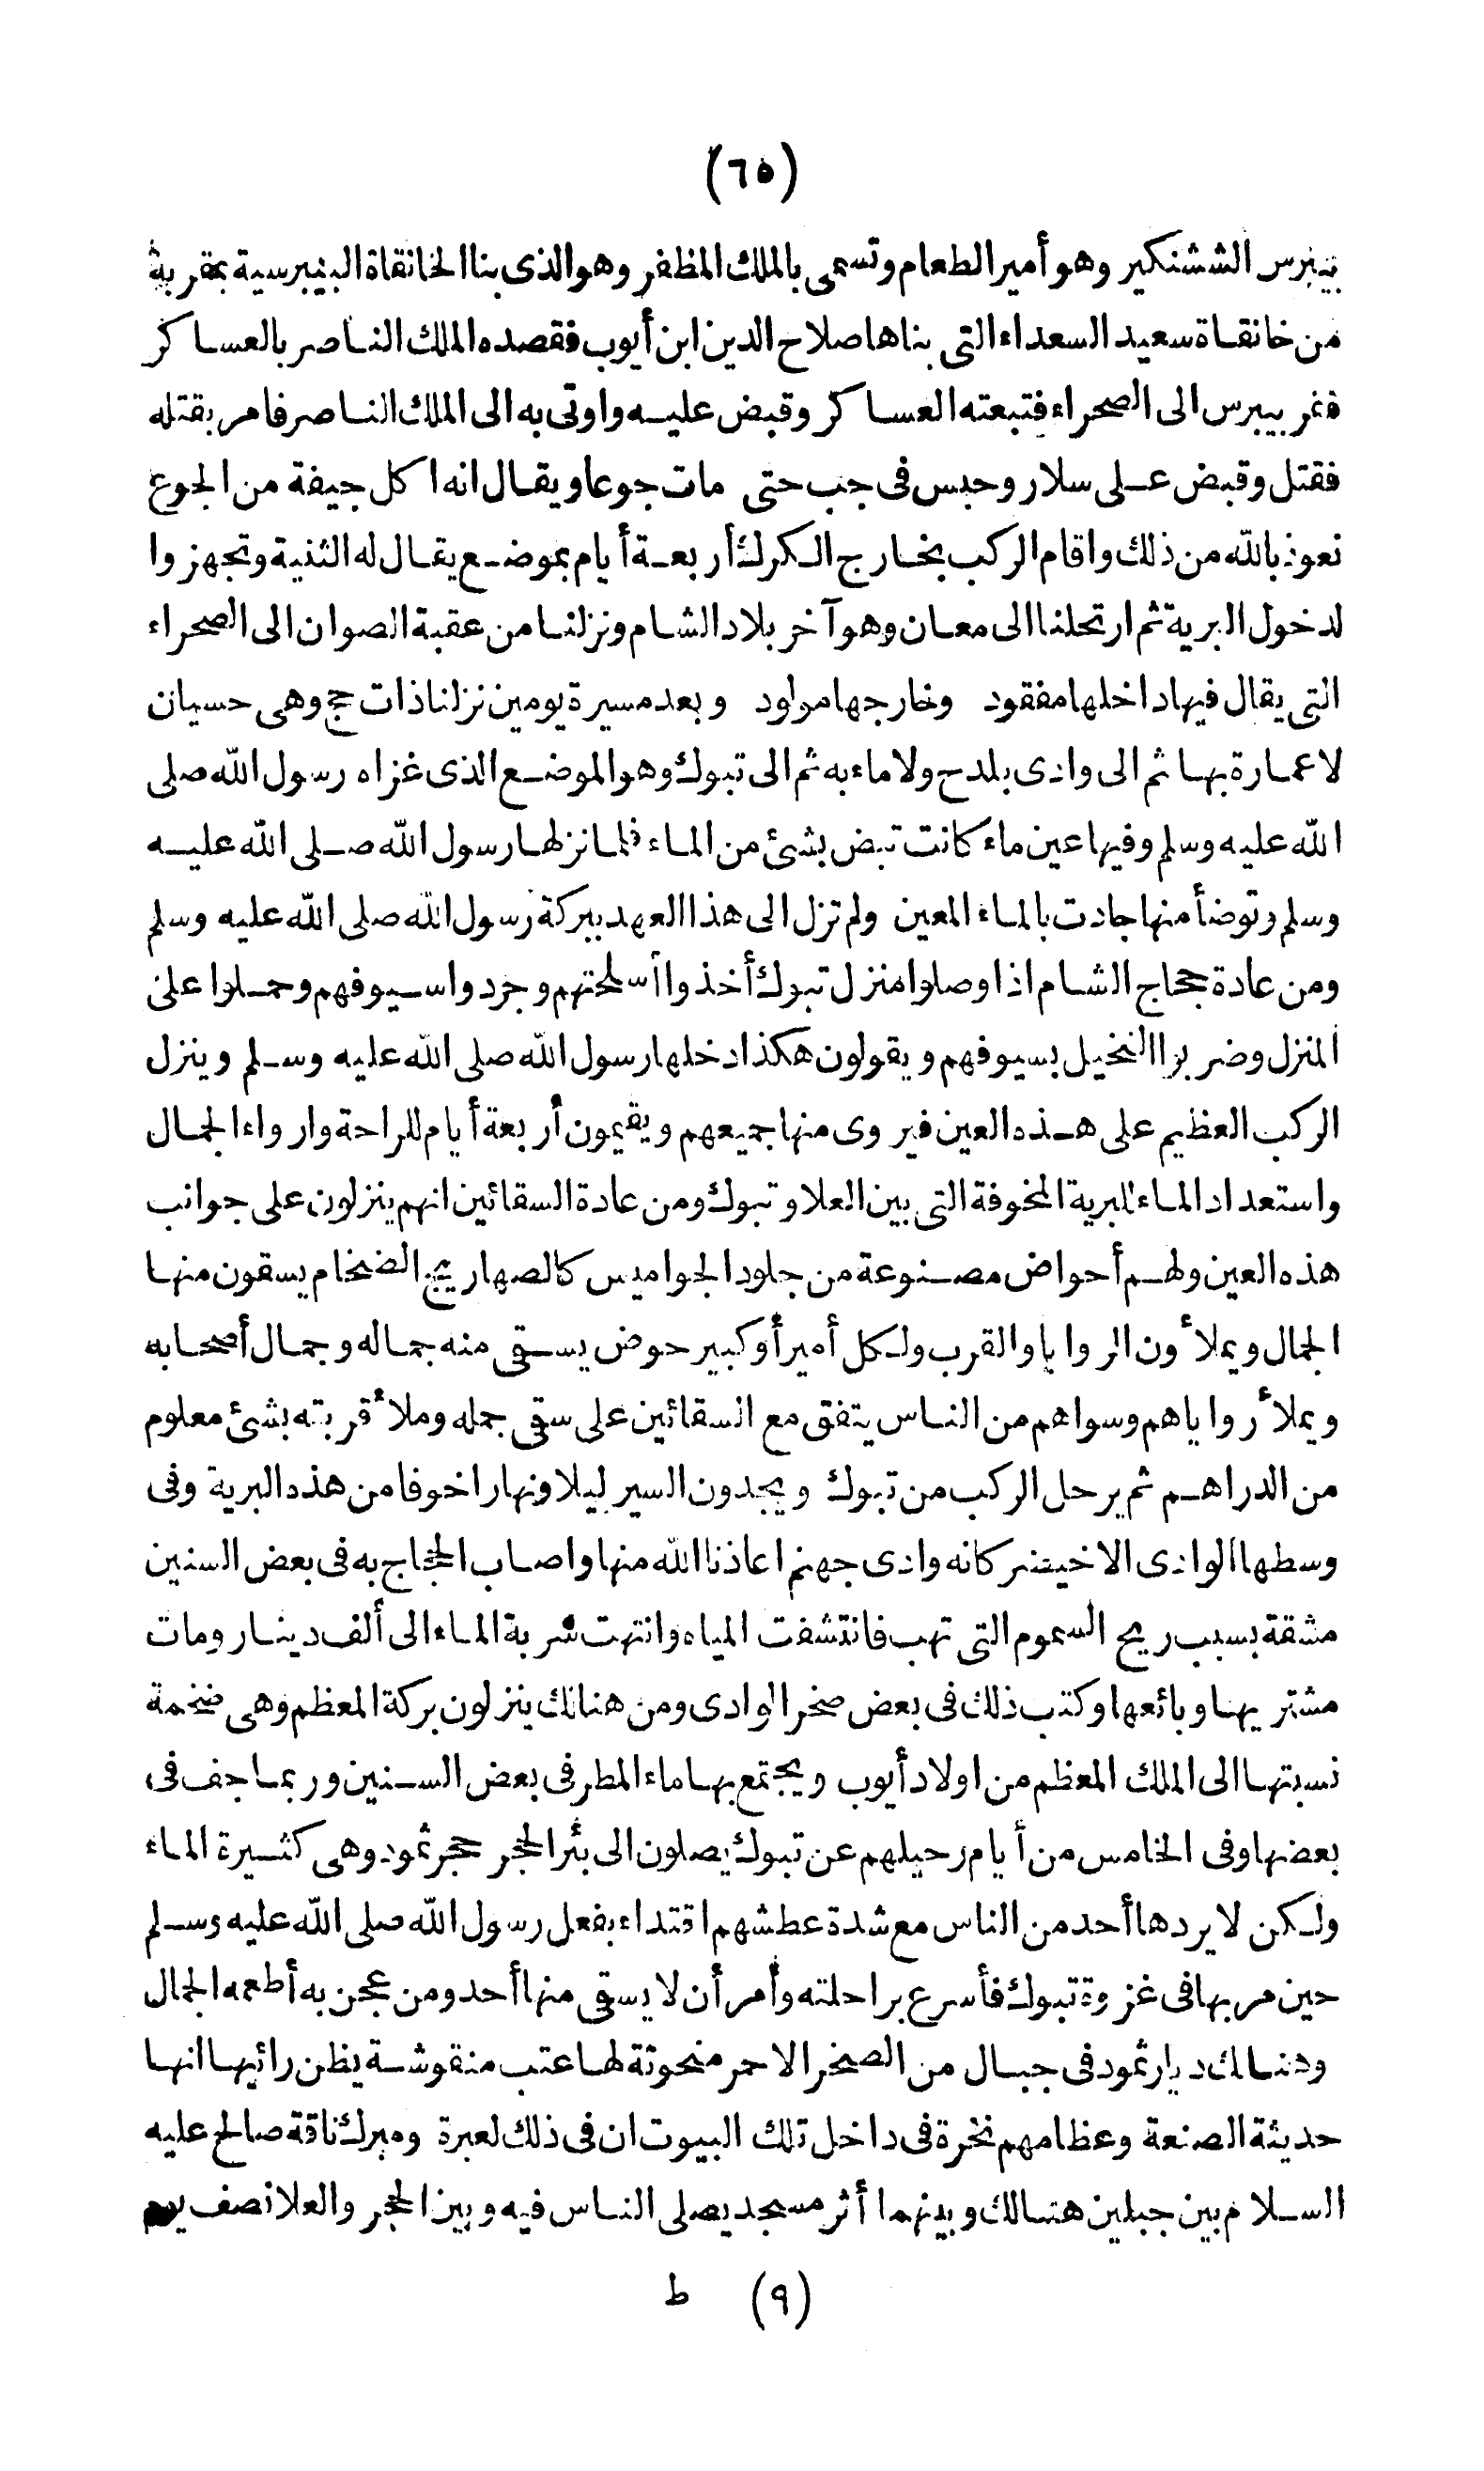 (٦٥)
بيبرس الششنكير وهو أمير الطعام وتسمى بالملك المظفر وهو الذى بنا الخانقاة البيبرسية بمقربة
من خانقاة سعيد السعداء التى بناها صلاح الدين ابن أيوب فقصده الملك الناصر بالعساكر
ففر بيبرس الى الصحراء فتبعته العساكر وقبض عليه واوتى به الى الملك الناصر فامر بقتله
فقتل وقبض على سلار وحبس فى جب حتى مات جوعا ويقال انه اكل جيفة من الجوع
نعوذ بالله من ذلك واقام الركب بخارج الكرك أربعة أيام بموضع يقال له الثنية وتجهزوا
لدخول البرية ثم ارتحلنا الى معان وهو آخر بلاد الشام ونزلنا من عقبة الصوان الى الصحراء
التى يقال فيها داخلها مفقود وخارجها مولود وبعد مسيرة يومين نزلنا ذات حج وهى حسيان
لا عمارة بها ثم الى وادى بلدح ولا ماء به ثم الى تبوك وهو الموضع الذى غزاه رسول الله صلى
الله عليه وسلم وفيها عين ماء كانت تبض بشئ من الماء فلما نزلها رسول الله صلى الله عليه
وسلم وتوضأ منها جادت بالماء المعين ولم تزل الى هذا العهد ببركة رسول الله صلى الله عليه وسلم
ومن عادة حجاج الشام اذا وصلوا منزل تبوك أخذوا أسلحتهم وجردوا سيوفهم وحملوا على
المنزل وضربوا النخيل بسيوفهم ويقولون هكذا دخلها رسول الله صلى الله عليه وسلم وينزل
الركب العظيم على هذه العين فيروى منها جميعهم ويقيمون أربعة أيام للراحة وارواء الجمال
واستعداد الماء للبرية المخوفة التى بين العلا وتبوك ومن عادة السقائين انهم ينزلون على جوانب
هذه العين ولهم أحواض مصنوعة من جلود الجواميس كالصهاريج الضخام يسقون منها
الجمال ويملأون الروايا والقرب ولكل أمير أوكبير حوض يسقى منه جماله وجمال أصحابه
ويملأ رواياهم وسواهم من الناس يتفق مع السقائين على سقى جمله وملأ قربته بشئ معلوم
من الدراهم ثم يرحل الركب من تبوك ويجدون السير ليلا ونهارا خوفا من هذه البرية وفى
وسطها الوادى الاخيضر كانه وادى جهنم اعاذنا الله منها واصاب الحجاج به فى بعض السنين
مشقة بسبب ريح السموم التى تهب فانتشفت المياه وانتهت شربة الماء الى ألف دينار ومات
مشتريها وبائعها وكتب ذلك فى بعض صخر الوادى ومن هنالك ينزلون بركة المعظم وهى ضخمة
نسبتها الى الملك المعظم من اولاد أيوب ويجتمع بها ماء المطر فى بعض السنين وربما جف فى
بعضها وفى الخامس من أيام رحيلهم عن تبوك يصلون الى بئر الحجر حجر ثمود وهى كثيرة الماء
ولكن لا يردها أحد من الناس مع شدة عطشهم اقتداء بفعل رسول الله صلى الله عليه وسلم
حين مر بها فى غزوة تبوك فأسرع براحلته وأمر أن لا يسقى منها أحد ومن عجن به أطعمه الجمال
وهنالك ديار ثمود فى جبال من الصخر الاحمر منحوتة لها عتب منقوشة يظن رائيها انها
حديثة الصنعة وعظامهم نخرة فى داخل تلك البيوت ان فى ذلك لعبرة ومبرك ناقة صالح عليه
السلام بين جبلين هنالك وبينهما أثر مسجد يصلى الناس فيه وبين الحجر والعلا نصف يوم
(٩) ط